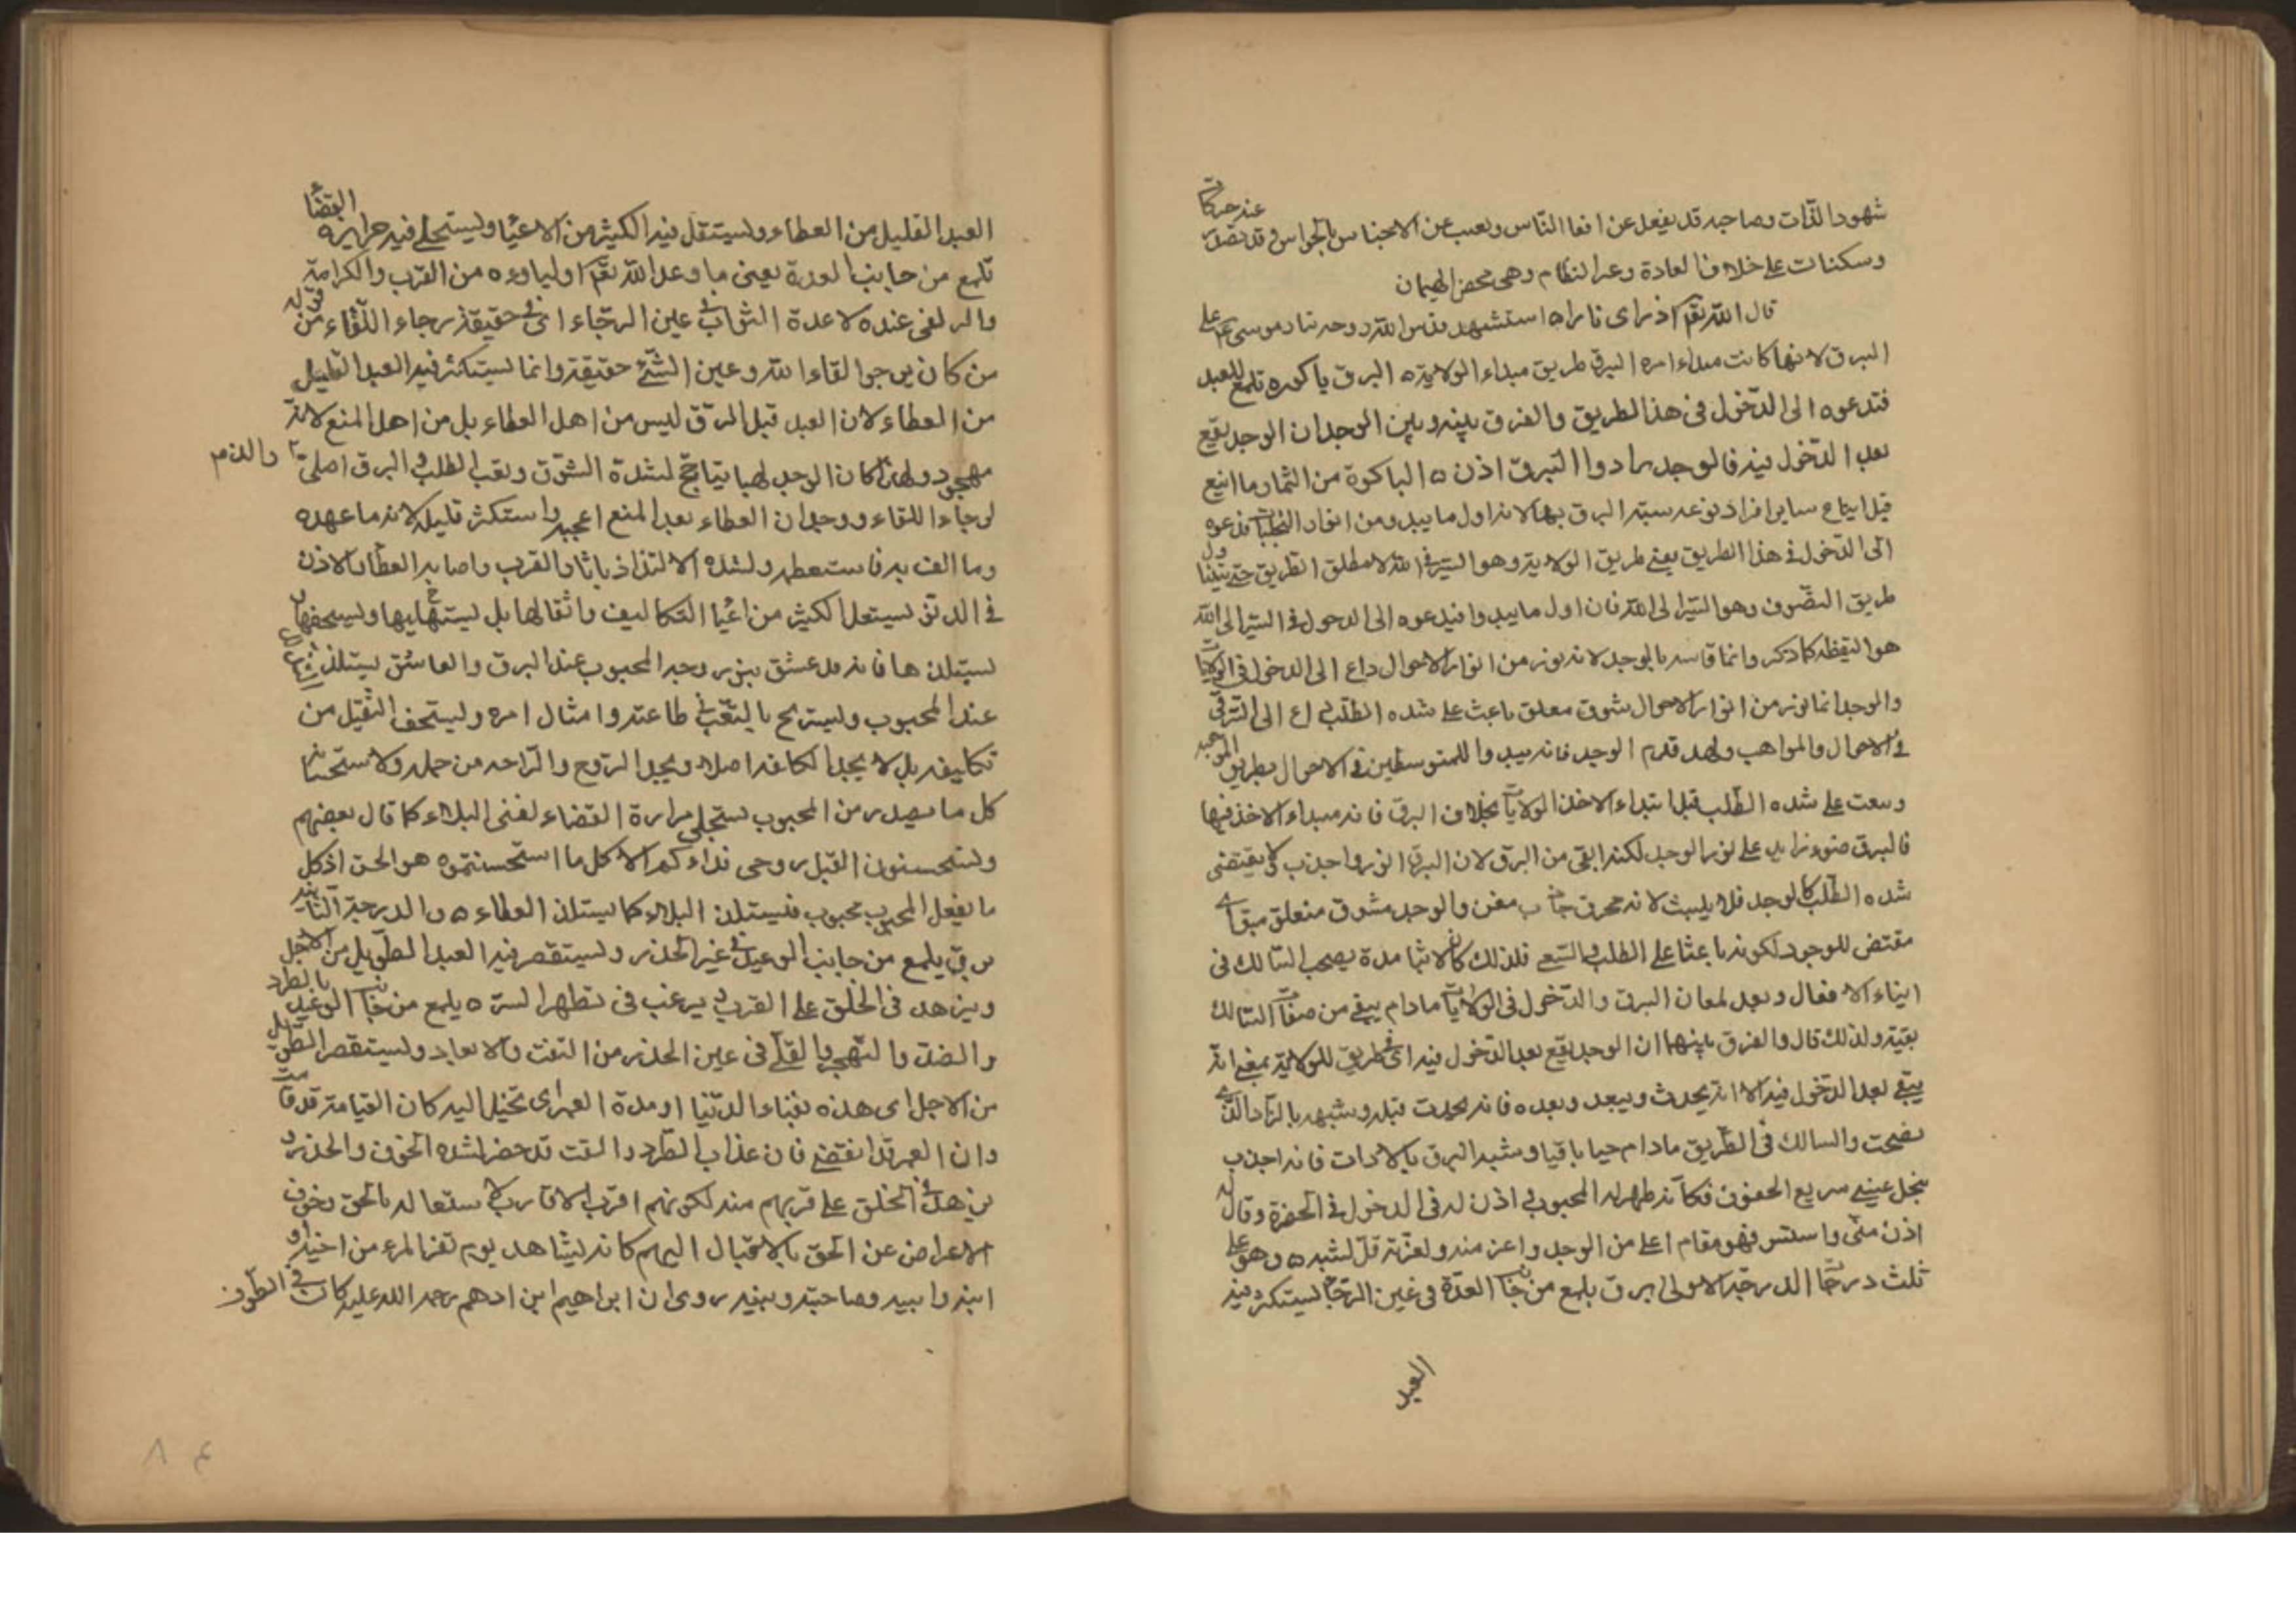 شهود الذات وصاحبه قد يغفل عن افعا الناس ويغيب عن الاحساس بالحواس وقد تصدر عند حركات
وسكنات على خلاف العادة وعد النظام وهى محض الهيمان
قال الله تعم اذ راى نارا ه استشهد قدس الله روحه بنار موسى عم على
البرق لانها كانت مبداء امره البرق طريق مبداء الولاية ه البرق باكوره تلمع للعبد
فتدعوه الى الدخول فى هذا الطريق والفرق بينه وبين الوجد ان الوجد يقع
بعد الدخول فيه فالوجد زاد والبرق اذن ه الباكورة من الثمار ما اينع
قبل ايناع ساير افراد نوعه سبه البرق بها لانه اول ما يبدو من انوار التجليات فتدعوه
الى الدخول فى هذا الطريق يعنى طريق الولاية وهو السير فى الله لا مطلق الطريق حتى يتناول
طريق التصوف وهو السير الى الله فان اول ما يبدوا فيدعوه الى الدخول فى السير الى الله
هو اليقظه كما ذكر وانما قاسه بالوجد لانه نور من انوار الاحوال داع الى الدخول فى الولايات
والوجد انما نور من انوار الاحوال شوق معلق باعث على شده الطلب داع الى الترقى
فى الاحوال والمواهب ولهد قدم الوجد فانه يبدوا للمتوسطين فى الاحوال بطريق المواجيد
وسعت على شده الطلب قبل ابتداء الاخذ الولايات بخلاف البرق فانه مبداء الاخذ فيها
فالبرق ضوء زايد على نور الوجد لكنه ابقى من البرق لان البرق انور واجذب لا يقتضى
شده الطلب كالوجد فلا يلبث لانه محرق مفن والوجد مشوق متعلق
مقتض للوجود لكونه باعثا على الطلب والسعى فلذلك كان لابثا مدة يصحب السالك فى
ايناء الافعال وبعد لمعان البرق والدخول فى الولايات مادام يبقى من صفات السالك
بقية ولذلك قال والفرق بينهما ان الوجد يقع بعد الدخول فيه اى فى طريق للولاية بمعنى انه
يبقى بعد الدخول فيه لا انه يحدث ويبعد وبعده فانه يحدث قبله وشبهه بالزاد الذى
يصحب والسالك فى الطريق مادام حيا باقيا وشبه البرق بالاذن فانه اجذب
سريع الخفوق فكانه ظهر له المحبوب اذن له فى الدخول فى الحضرة وقال له
اذن منى واستس فهو مقام اعلى من الوجد واعز منه ولعزته قل لبثه ه وهو على
ثلث درجات الدرجة الاولى برق يلمع من جانب العدة فى عين الرجاء يستكثر فيه
العبد
العبد القليل من العطاء ويستقل فيه الكثير من الاعياء ويستحلى فيه مراره القضاء
تلمع من جانب العدة يعنى ما وعد الله تعم اولياءه من القرب والكرامة
والزلفى عنده لا عدة الثواب فى عين الرجاء اى فى حقيقة رجاء اللقاء من قوله
من كان يرجوا لقاء الله وعين الشئ حقيقته وانما يستكثر فيه العبد القليل
من العطاء لان العبد قبل البرق ليس من اهل العطاء بل من اهل المنع لانه
مهجود ولهذا كان الوجد لهبا يتاجج لشدة الشوق وتعب الطلب والبرق اصلى والذم
لرجاء اللقاء ووجدان العطاء بعد المنع اعجبه واستكثر قليله لانه ما عهده
وما الف به فاستعظمه ولشده الالتذاذ باثار القرب واصابه العطاء والاذن
فى الدنو يستقل الكثير من اعباء التكاليف واثقالها بل ليستهايها ويستخفها
يستلذها فانه قد عشق بنور وجه المحبوب عند البرق والعاشق يستلذ
عند المحبوب ويستريح بالتعب فى طاعته وامتثال امره ويستخف الثقيل من
تكاليفه بل لا يجد الكلفة اصلا ويجد الروح والراحه من حمله ولاستحسانه
كل ما يصدر من المحبوب يستحلى مرارة القضاء لفنى البلاء كما قال بعضهم
وتستحسنون القبل روحى نداءكم الا كل ما استحسنتموه هو الحسن اذ كل
ما يفعل المحبوب محبوب فيستلذ البلاء كما يستلذ العطاء ه والدرجة الثانيه
برق يلمع من جانب الوعيد فى عين الحذر ويستقصر فيه العبد الطويل من الاجل
ويزهد فى الخلق على القرب ويرغب فى تطهير السر ه يلمع من جانب الوعيد بالطرد
والصد والهجر والقلى فى عين الحذر من المقت والابعاد ويستقصر الطويل
من الاجل اى هذه بقاء الدنيا او مدة العمر اى تخيل اليه كان القيامة قد قامت
وان العمر قد انقضى فان عذاب الطرد والمقت قد حضر لشده الخوف والحذر و
يزهد فى الخلق على قربهم منه لكونهم اقرب الاقارب لاستغاله بالحق وخوف
الاعراض عن الحق بالاقبال اليهم كانه يشاهد يوم يفر المرء من اخيه و
ابيه وصاحبته وبنيه روى ان ابراهيم ابن ادهم رحمه الله عليه كان فى الطواف
٨٤